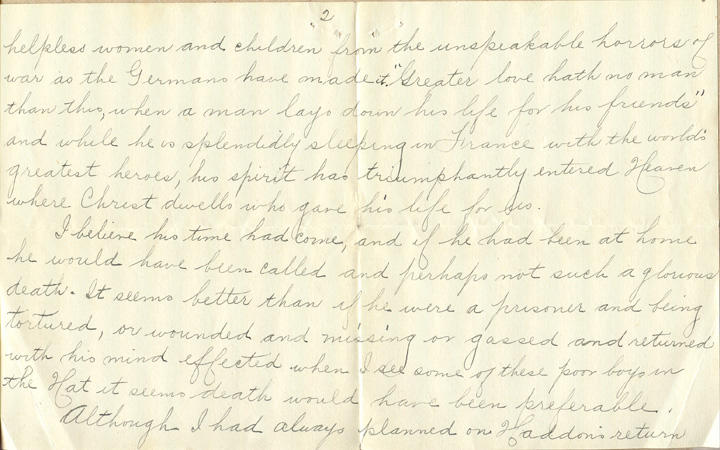 "2
helpless women and children" "from" the unspeakable horrors of
war as the Germans have made it." Greater love hath no man
than this, when a man lays down his life for his friends"
and while he is splendidly sleeping in France with the world's
greatest heroes, his spirit has triumphantly entered Heaven
where Christ dwells who gave his life for us.
I believe his time had come, and if he had been at home
he would have been called and perhaps not such a glorious
death. It seems better than if he were a prisoner and being
tortured, or wounded and missing or gassed and returned
with his mind effected when I see some of these poor boys in
the Hat it seems death would have been preferable.
Although I had always planned on Haddon's return